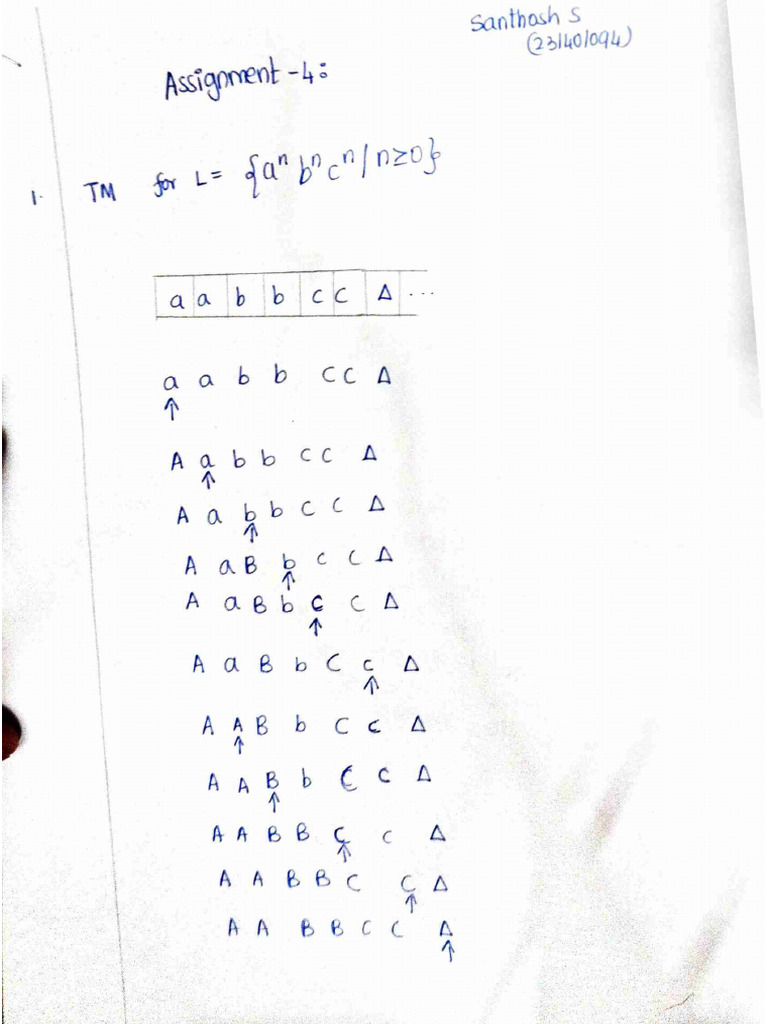 Santhosh S
(231401094)
Assignment-4:
1. TM for L = {aⁿ bⁿ cⁿ / n≥0}
a a b b c c Δ ...
a a b b c c Δ
↑
A a b b c c Δ
↑
A a b b c c Δ
↑
A a B b c c Δ
↑
A a B b c c Δ
↑
A a B b C c Δ
↑
A A B b C c Δ
↑
A A B b C c Δ
↑
A A B B C c Δ
↑
A A B B C C Δ
↑
A A B B C C Δ
↑